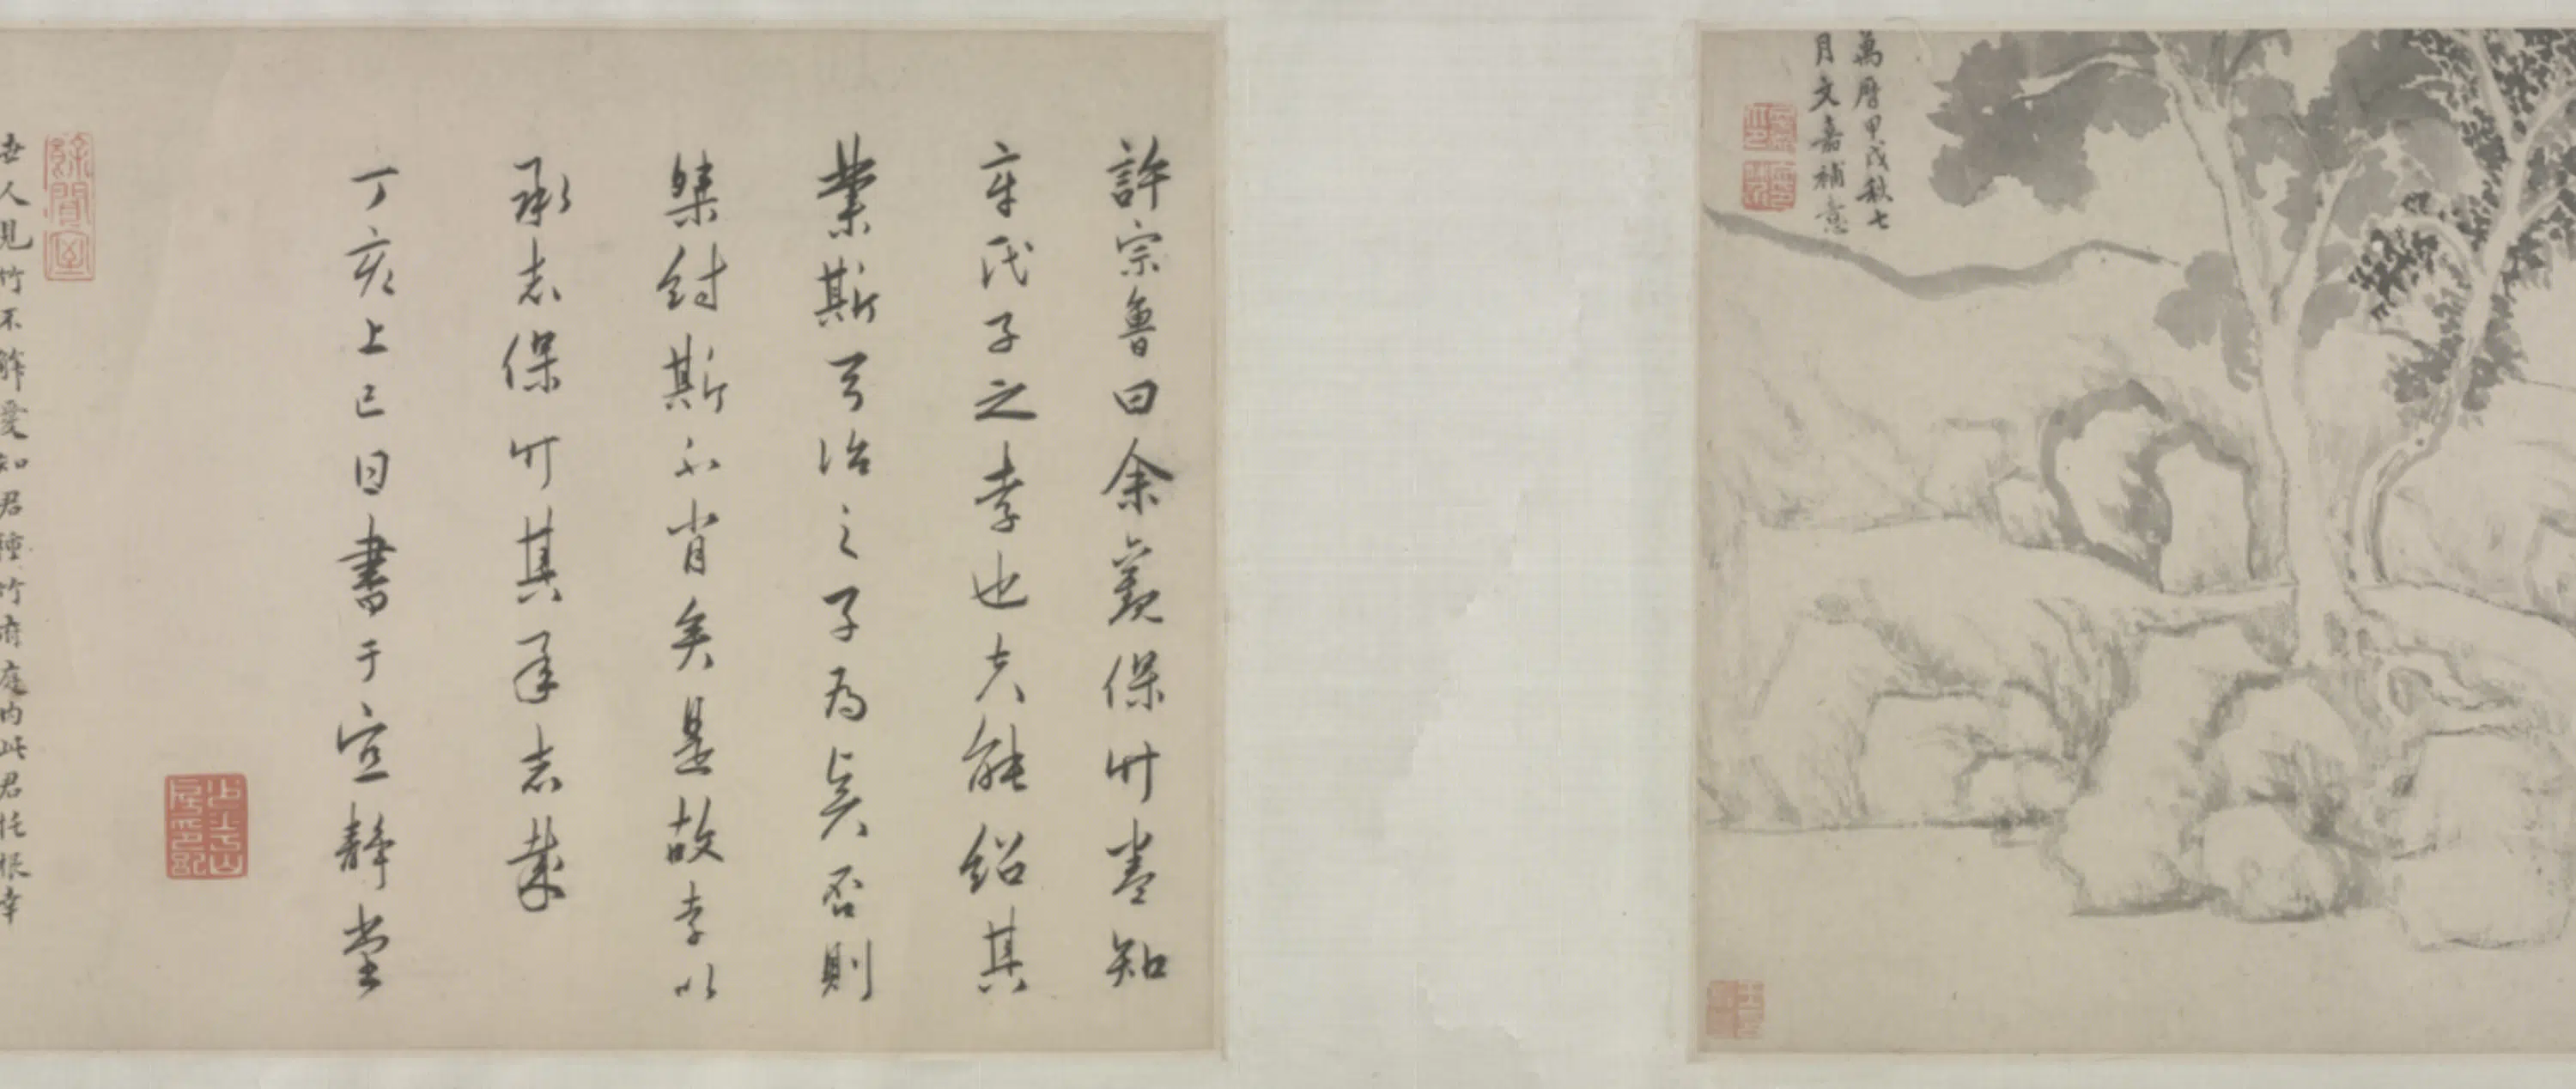 萬曆甲戌秋七
月文嘉補意
許宗魯曰余觀保竹卷知
辛氏子之孝也夫能紹其
業斯可謂之子為貞否則
桀紂斯不肖矣是故孝以
承志保竹其承志哉
丁亥上巳日書于宜靜堂
世人見竹不解愛知君種竹滿庭內此君托根幸